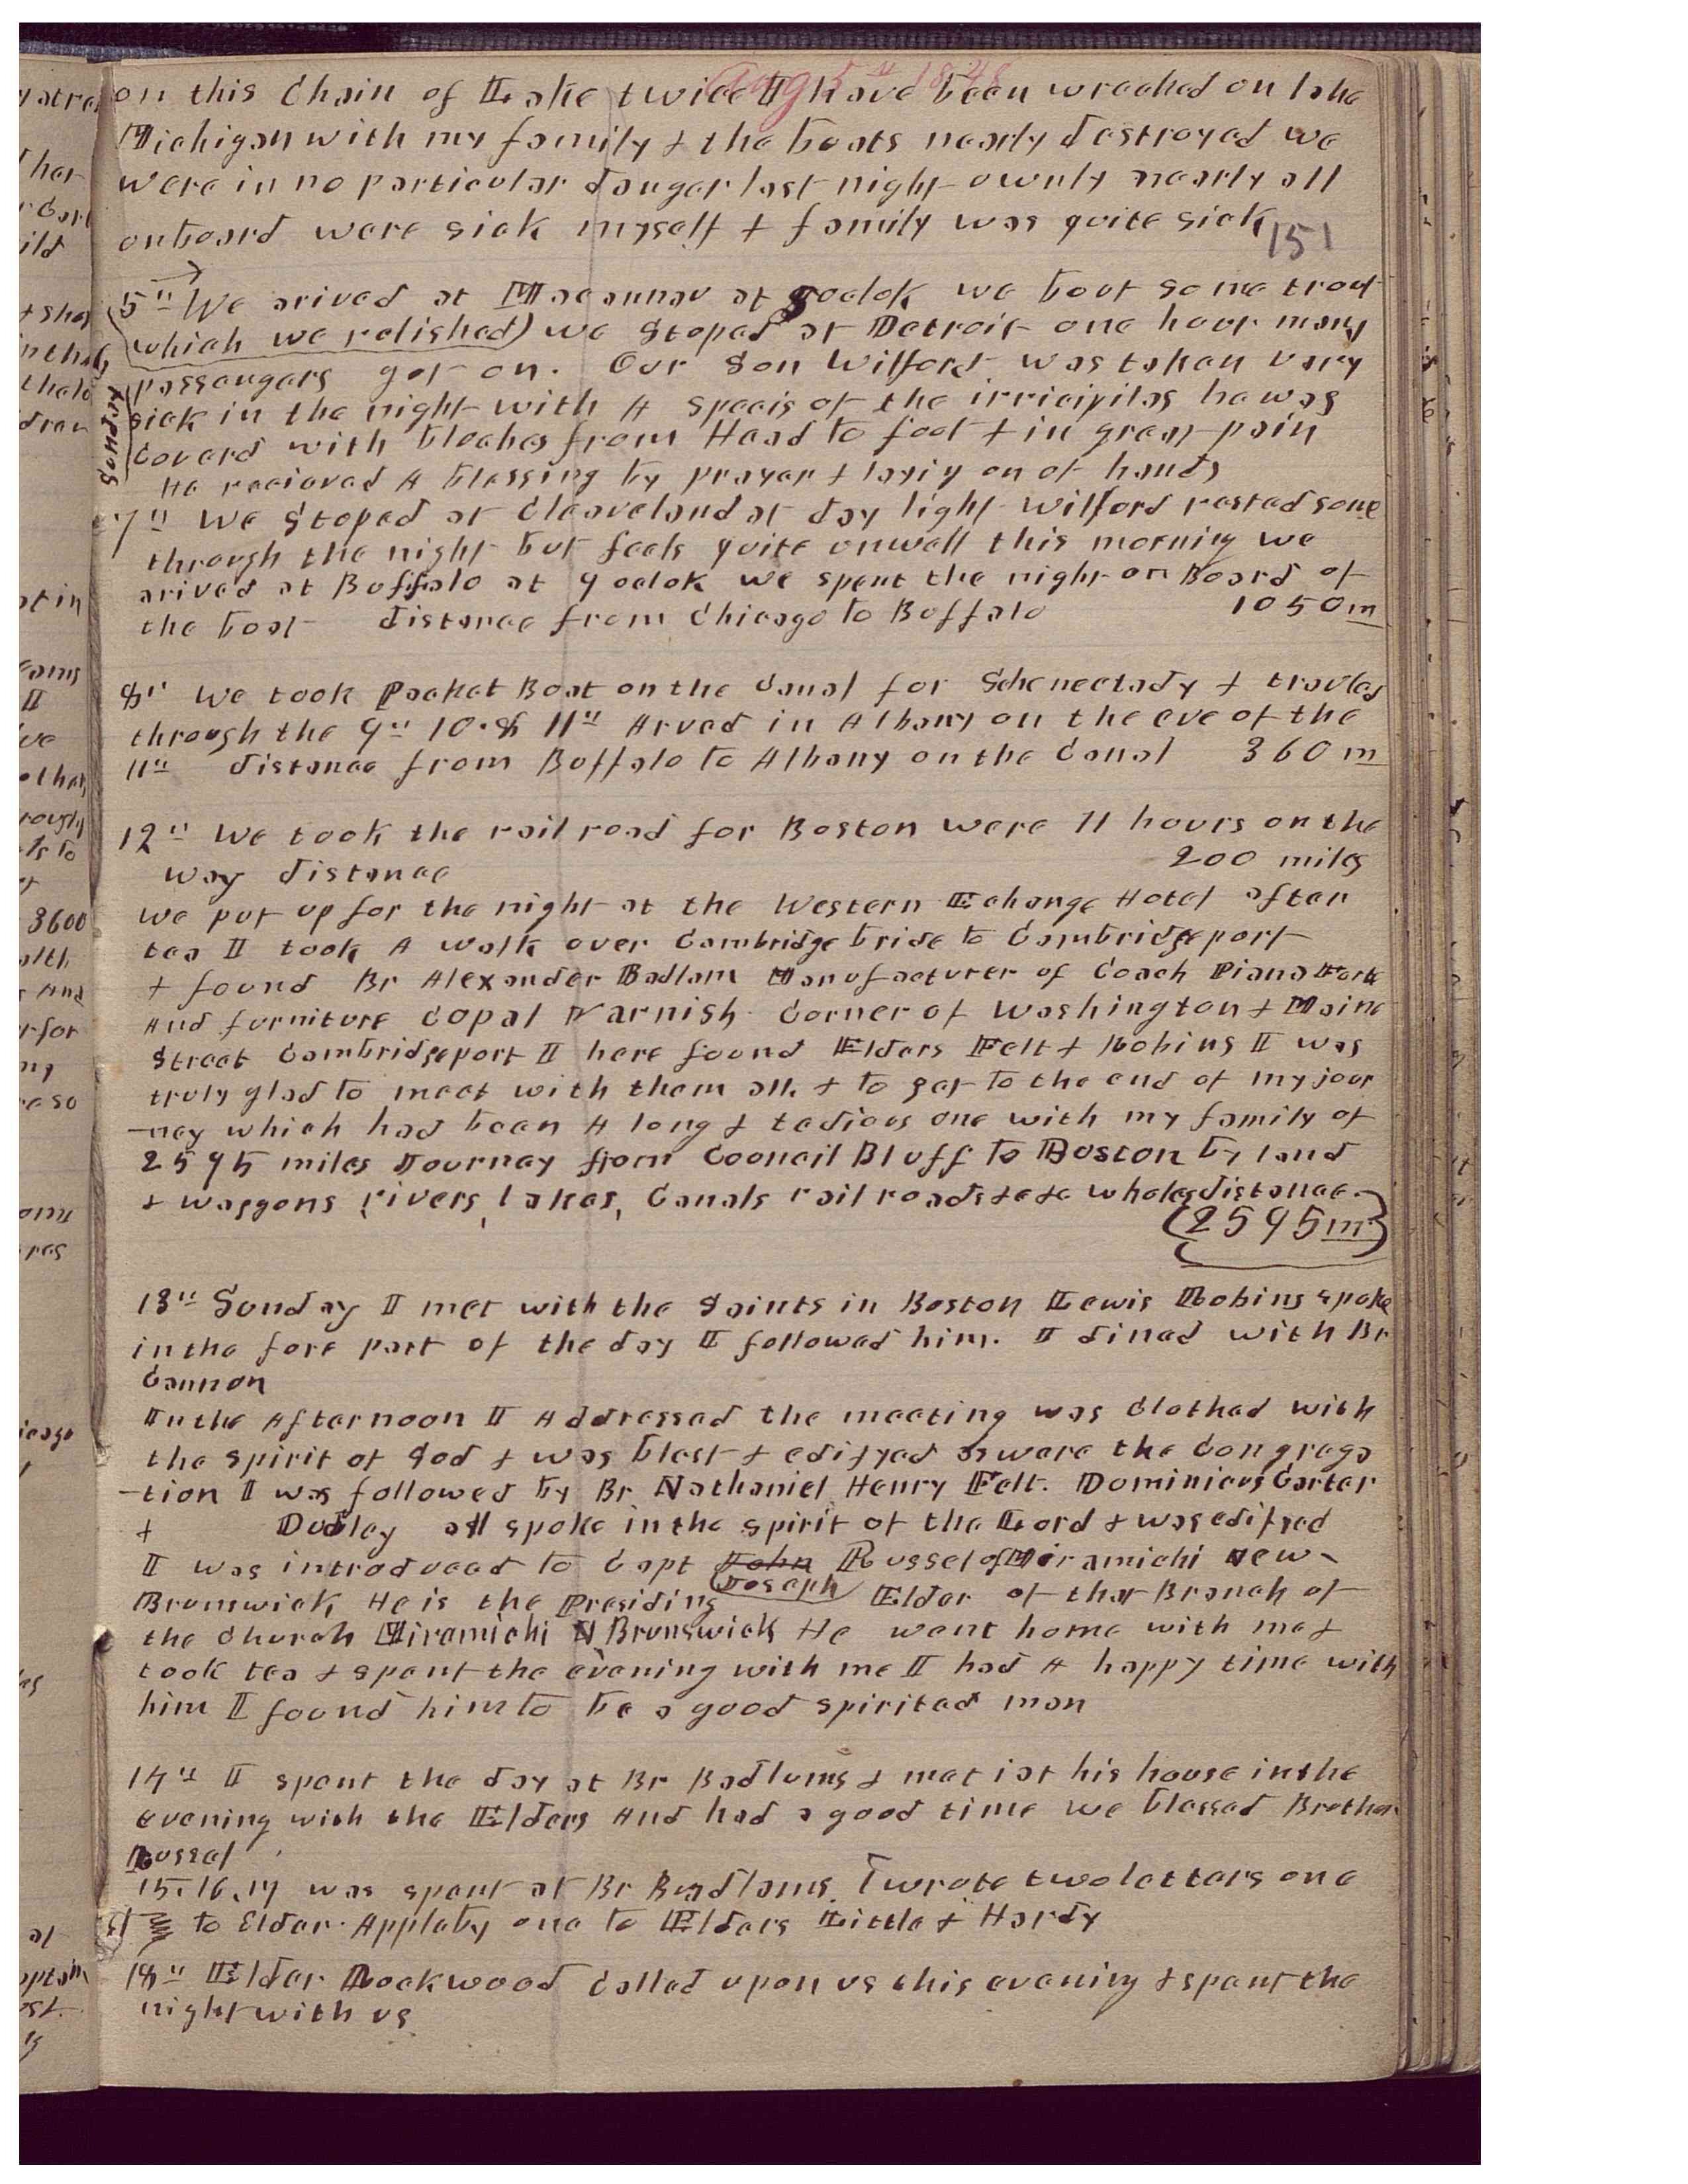 Aug 5th 1848
on this Chain of Lake twice I have been wrecked on lake
Michigan with my family & the boats nearly destroyed we
were in no particular danger last night ownly nearly all
onboard were sick myself & family was quite sick
151
5th We arived at Macannaw at 9 oclok we bout some trout
which we relished) we stoped at Detroit one hour many
passengers got on. Our Son Wilford was taken very
Sunday
sick in the night with A specis of the irricipilas he was
Coverd with bloches from Head to foot & in great pain
He recieved A blessing by prayer & layig on of hands
7th We stoped at Cleaveland at day light Wilford rested some
through the night but feels quite unwell this mornig we
arived at Buffalo at 9 oclok we spent the night on Board of
the boat distance from Chicago to Buffalo 1050 m
8th We took Packet Boat on the Canal for Schenectady & travled
through the 9th 10. & 11th Arved in Albany on the eve of the
11th distance from Buffalo to Albany on the Canal 360 m
12th We took the rail road for Boston were 11 hours on the
way distance 200 miles
We put up for the night at the Western Echange Hotel after
tea I took A walk over Cambridge bride to Cambridgeport
& found Br Alexander Badlam Manufacturer of Coach Piana Forte
And furniture Copal Varnish Corner of Washington & Maine
Street Cambridgeport I here found Elders Felt & Robins I was
truly glad to meet with them all & to get to the end of my jour
-ney which had been A long & tedious one with my family of
2595 miles Journey from Council Bluff to Boston by land
& waggons rivers, lakes, Canals rail roads &c &c whole distance
(2595 m)
13th Sunday I met with the Saints in Boston Lewis Robins spoke
in the fore part of the day I followed him. I dined with Br
Cannon
In the Afternoon I Addressed the meeting was Clothed with
the spirit of God & was blest & edifyed as were the Congrega
-tion I was followed by Br Nathaniel Henry Felt. Dominicus Carter
& Dudley all spoke in the spirit of the Lord & was edifyed
I was introduced to Capt John Russel of Miramichi New-
Joseph
Brunswick He is the Presiding Elder of that Branch of
the Church Miramichi N Brunswick He went home with me &
took tea & spent the evening with me I had A happy time with
him I found him to be a good spirited man
14th I spent the day at Br Badlams & met i at his house in the
evening with the Elders And had a good time we blessed Brother
Russel
15. 16. 17 was spent at Br Badlams. I wrote two letters one
to Elder Appleby one to Elders Little & Hardy
18th Elder Rockwood Called upon us this evenig & spent the
night with us